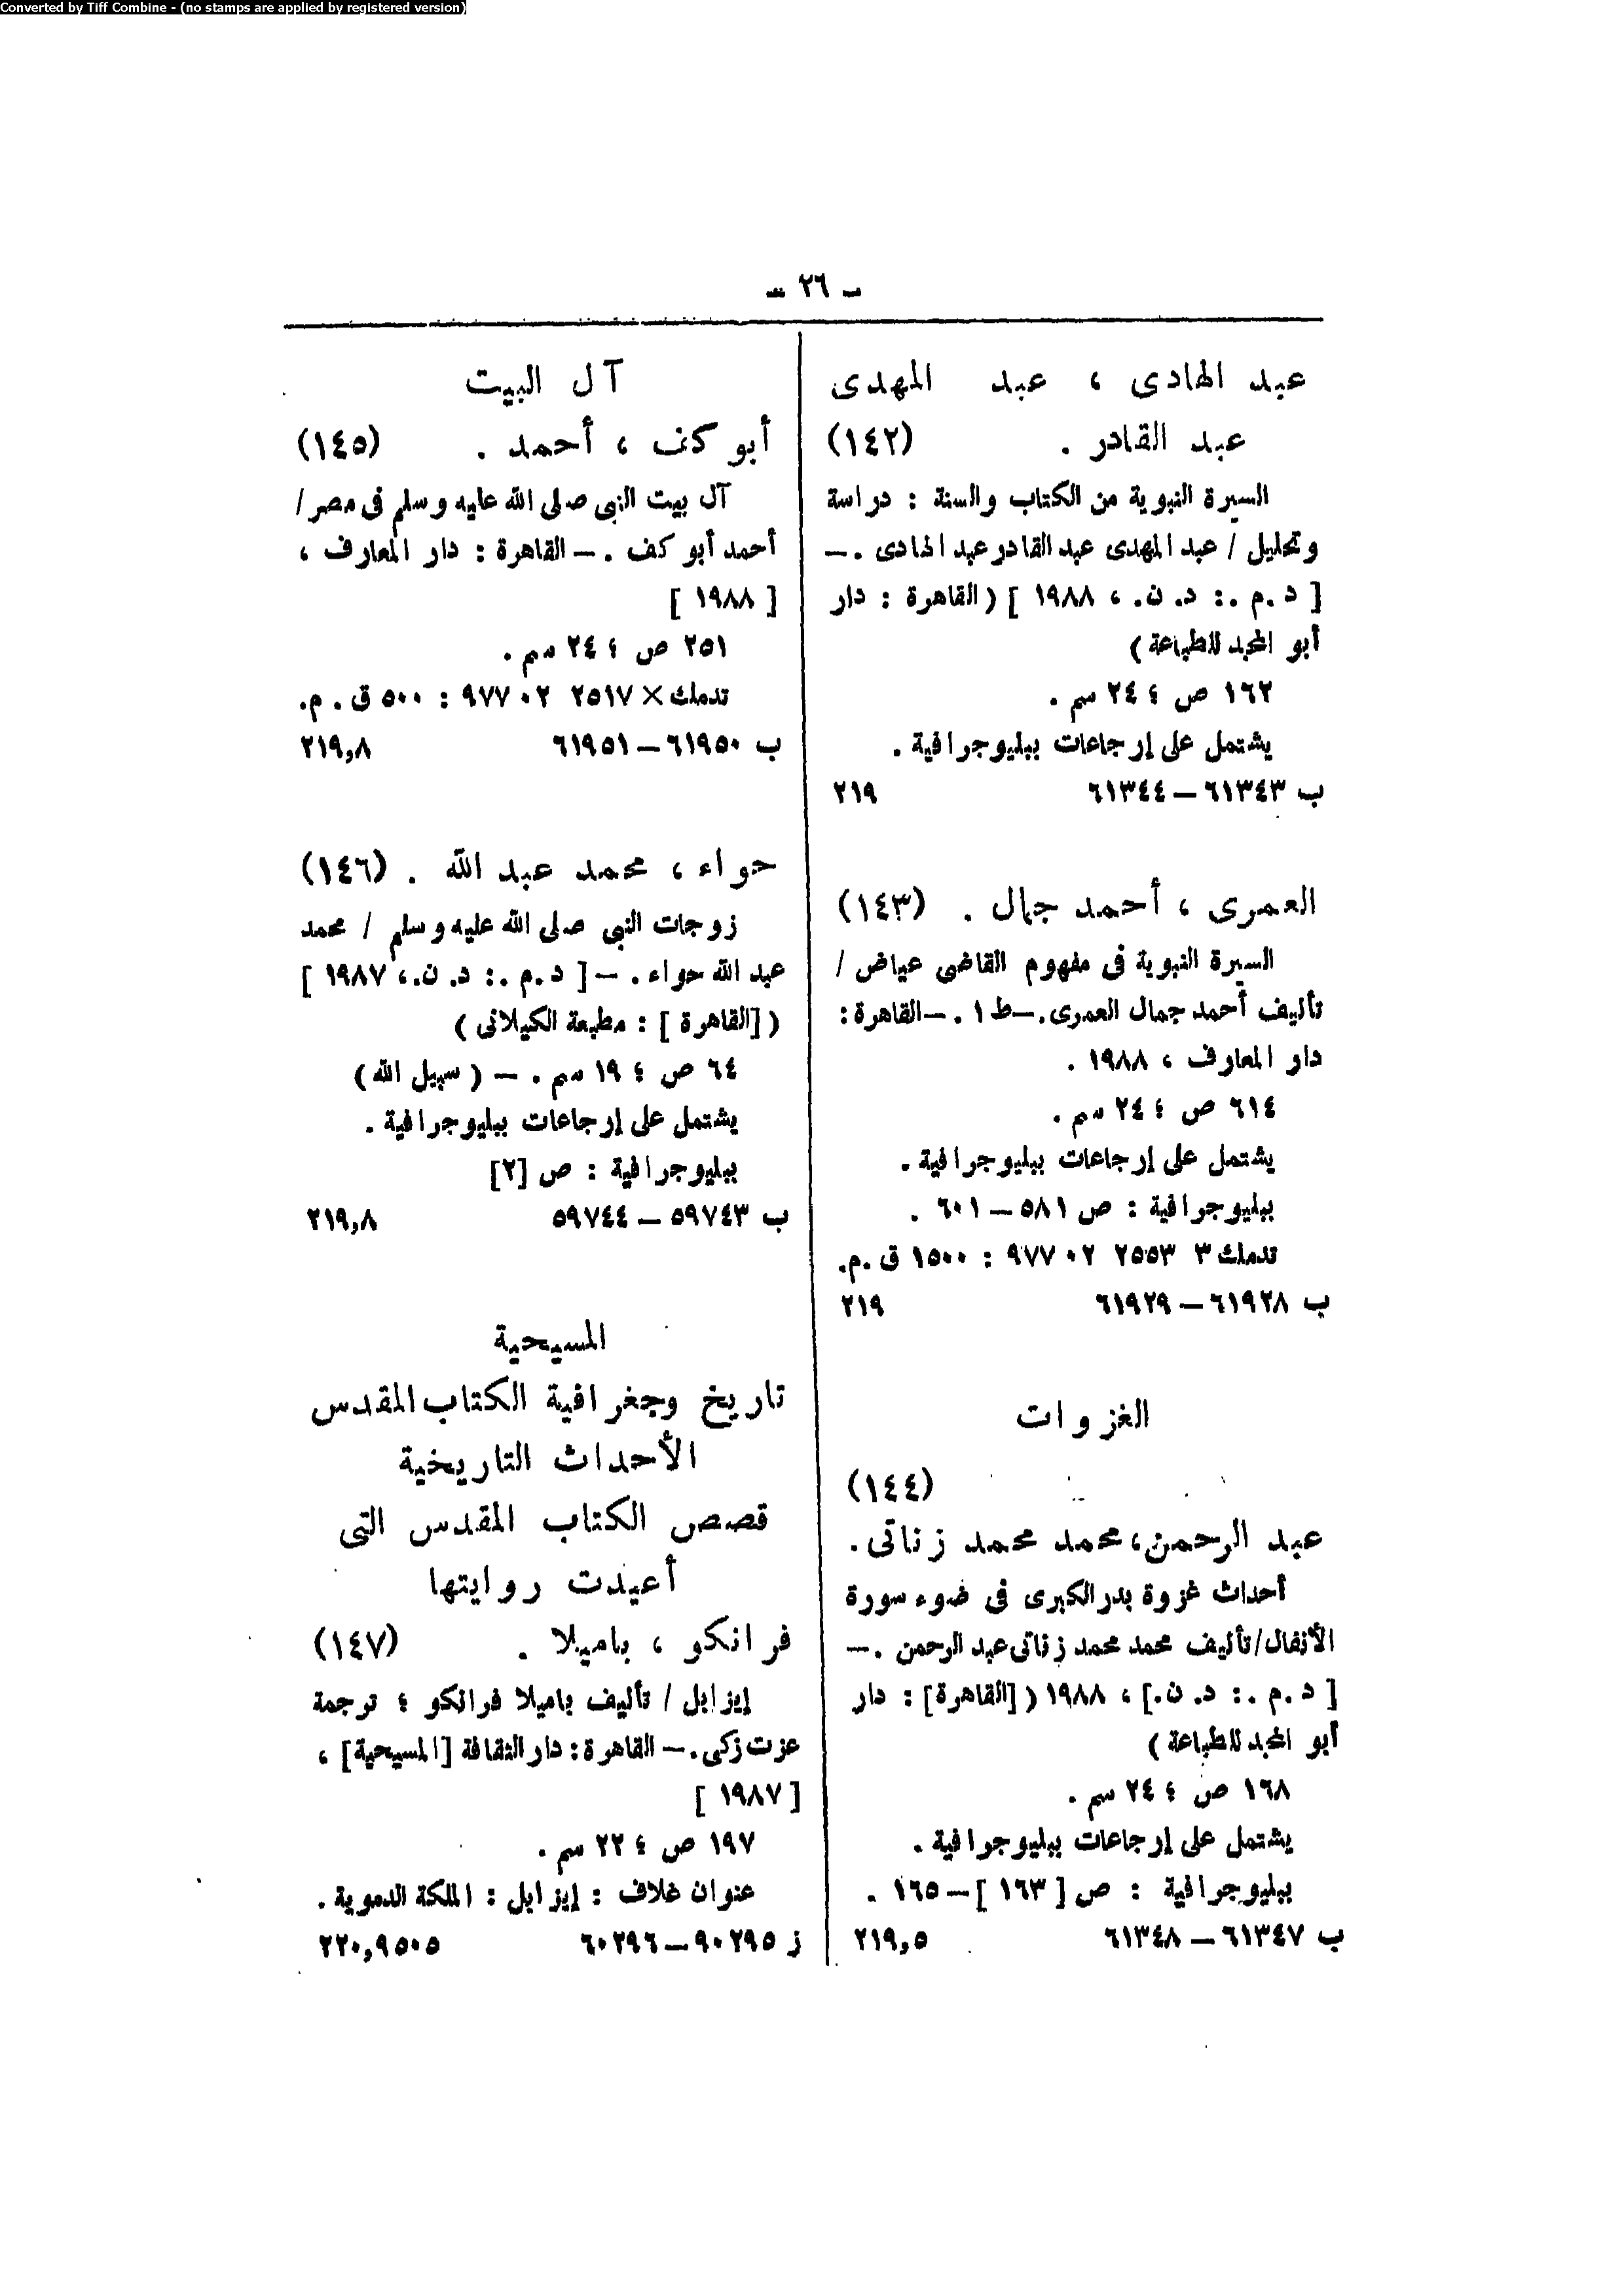 Converted by Tiff Combine - (no stamps are applied by registered version)
ـ ٢٦ ـ
عبد الهادى ، عبد المهدى
عبد القادر . (١٤٢)
السيرة النبوية من الكتاب والسنة : دراسة
وتحليل / عبد المهدى عبد القادر عبد الهادى .ـ
[ د .م .: د. ن. ، ١٩٨٨ ] ( القاهرة : دار
أبو المجد للطباعة )
١٦٢ ص ؛ ٢٤ سم .
يشتمل على إرجاعات ببليوجرافية .
ب ٦١٣٤٣ – ٦١٣٤٤ ٢١٩
العمرى ، أحمد جمال . (١٤٣)
السيرة النبوية فى مفهوم القاضى عياض /
تأليف أحمد جمال العمرى.ـ ط ١ .ـ القاهرة :
دار المعارف ، ١٩٨٨ .
٦١٤ ص ؛ ٢٤ سم .
يشتمل على إرجاعات ببليوجرافية .
ببليوجرافية : ص ٥٨١ – ٦٠١ .
تدمك ٣ ٢٥٥٣ ٠٢ ٩٧٧ : ١٥٠٠ ق .م.
ب ٦١٩٢٨ – ٦١٩٢٩ ٢١٩
الغزوات
(١٤٤)
عبد الرحمن، محمد محمد زناتى .
أحداث غزوة بدر الكبرى فى ضوء سورة
الأنفال/ تأليف محمد محمد زناتى عبد الرحمن .ـ
[ د .م .: د. ن.] ، ١٩٨٨ ( [القاهرة] : دار
أبو المجد للطباعة )
١٦٨ ص ؛ ٢٤ سم .
يشتمل على إرجاعات ببليوجرافية .
ببليوجرافية : ص [ ١٦٣ ] – ١٦٥ .
ب ٦١٣٤٧ – ٦١٣٤٨ ٢١٩,٥
آل البيت
أبو كف ، أحمد . (١٤٥)
آل بيت النبى صلى الله عليه وسلم فى مصر /
أحمد أبو كف .ـ القاهرة : دار المعارف ،
[ ١٩٨٨ ]
٢٥١ ص ؛ ٢٤ سم .
تدمك × ٢٥١٧ ٠٢ ٩٧٧ : ٥٠٠ ق . م.
ب ٦١٩٥٠ – ٦١٩٥١ ٢١٩,٨
حواء ، محمد عبد الله . (١٤٦)
زوجات النبى صلى الله عليه وسلم / محمد
عبد الله حواء .ـ [ د .م .: د. ن.، ١٩٨٧ ]
( [القاهرة ] : مطبعة الكيلانى )
٦٤ ص ؛ ١٩ سم .ـ ( سبيل الله )
يشتمل على إرجاعات ببليوجرافية .
ببليوجرافية : ص [٢]
ب ٥٩٧٤٣ – ٥٩٧٤٤ ٢١٩,٨
المسيحية
تاريخ وجغرافية الكتاب المقدس
الأحداث التاريخية
قصص الكتاب المقدس التى
أعيدت روايتها
فرانكو ، باميلا . (١٤٧)
إيزابل / تأليف باميلا فرانكو ؛ ترجمة
عزت زكى.ـ القاهرة : دار الثقافة [المسيحية] ،
[ ١٩٨٧ ]
١٩٧ ص ؛ ٢٢ سم .
عنوان غلاف : إيزابل : الملكة الدموية .
ز ٩٠٢٩٥ – ٦٠٢٩٦ ٢٢٠,٩٥٠٥